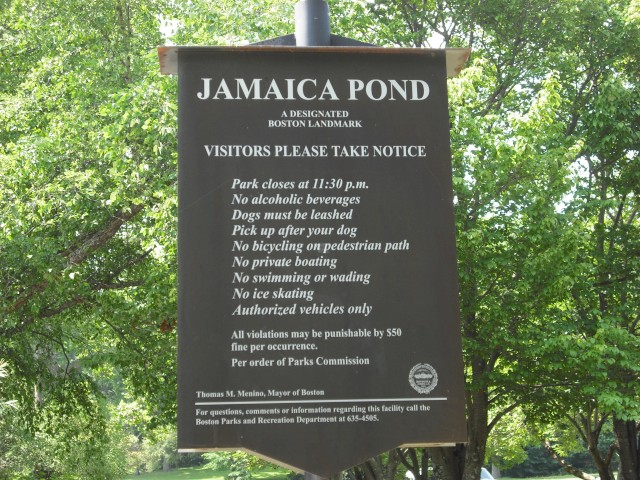 JAMAICA POND
A DESIGNATED
BOSTON LANDMARK
VISITORS PLEASE TAKE NOTICE
Park closes at 11:30 p.m.
No alcoholic beverages
Dogs must be leashed
Pick up after your dog
No bicycling on pedestrian path
No private boating
No swimming or wading
No ice skating
Authorized vehicles only
All violations may be punishable by $50
fine per occurrence.
Per order of Parks Commission
Thomas M. Menino, Mayor of Boston
For questions, comments or information regarding this facility call the
Boston Parks and Recreation Department at 635-4505.